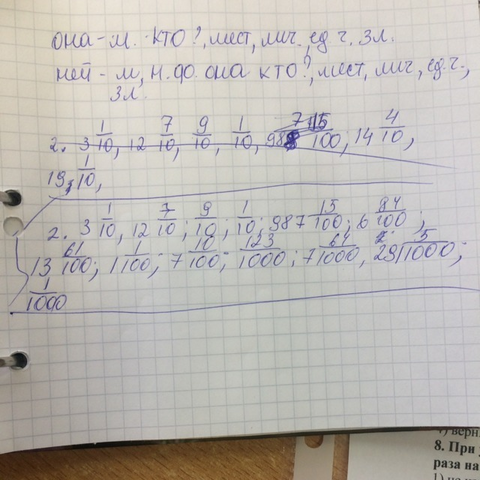 она - м. - кто?, мест, лич. ед ч. 3 л.
ней - м, н. фо. она кто?, мест, лич, ед. ч.,
3 л.
2. 3 1/10, 12 7/10, 9/10, 1/10, 98 15/100, 14 4/10,
19, 1/10,
2. 3 1/10, 12 7/10; 9/10; 1/10; 987 15/100; 6 84/100;
13 61/100; 1 1/100; 7 10/100; 123/1000; 7 64/1000, 29 5/1000;
1/1000
8. При
раза на